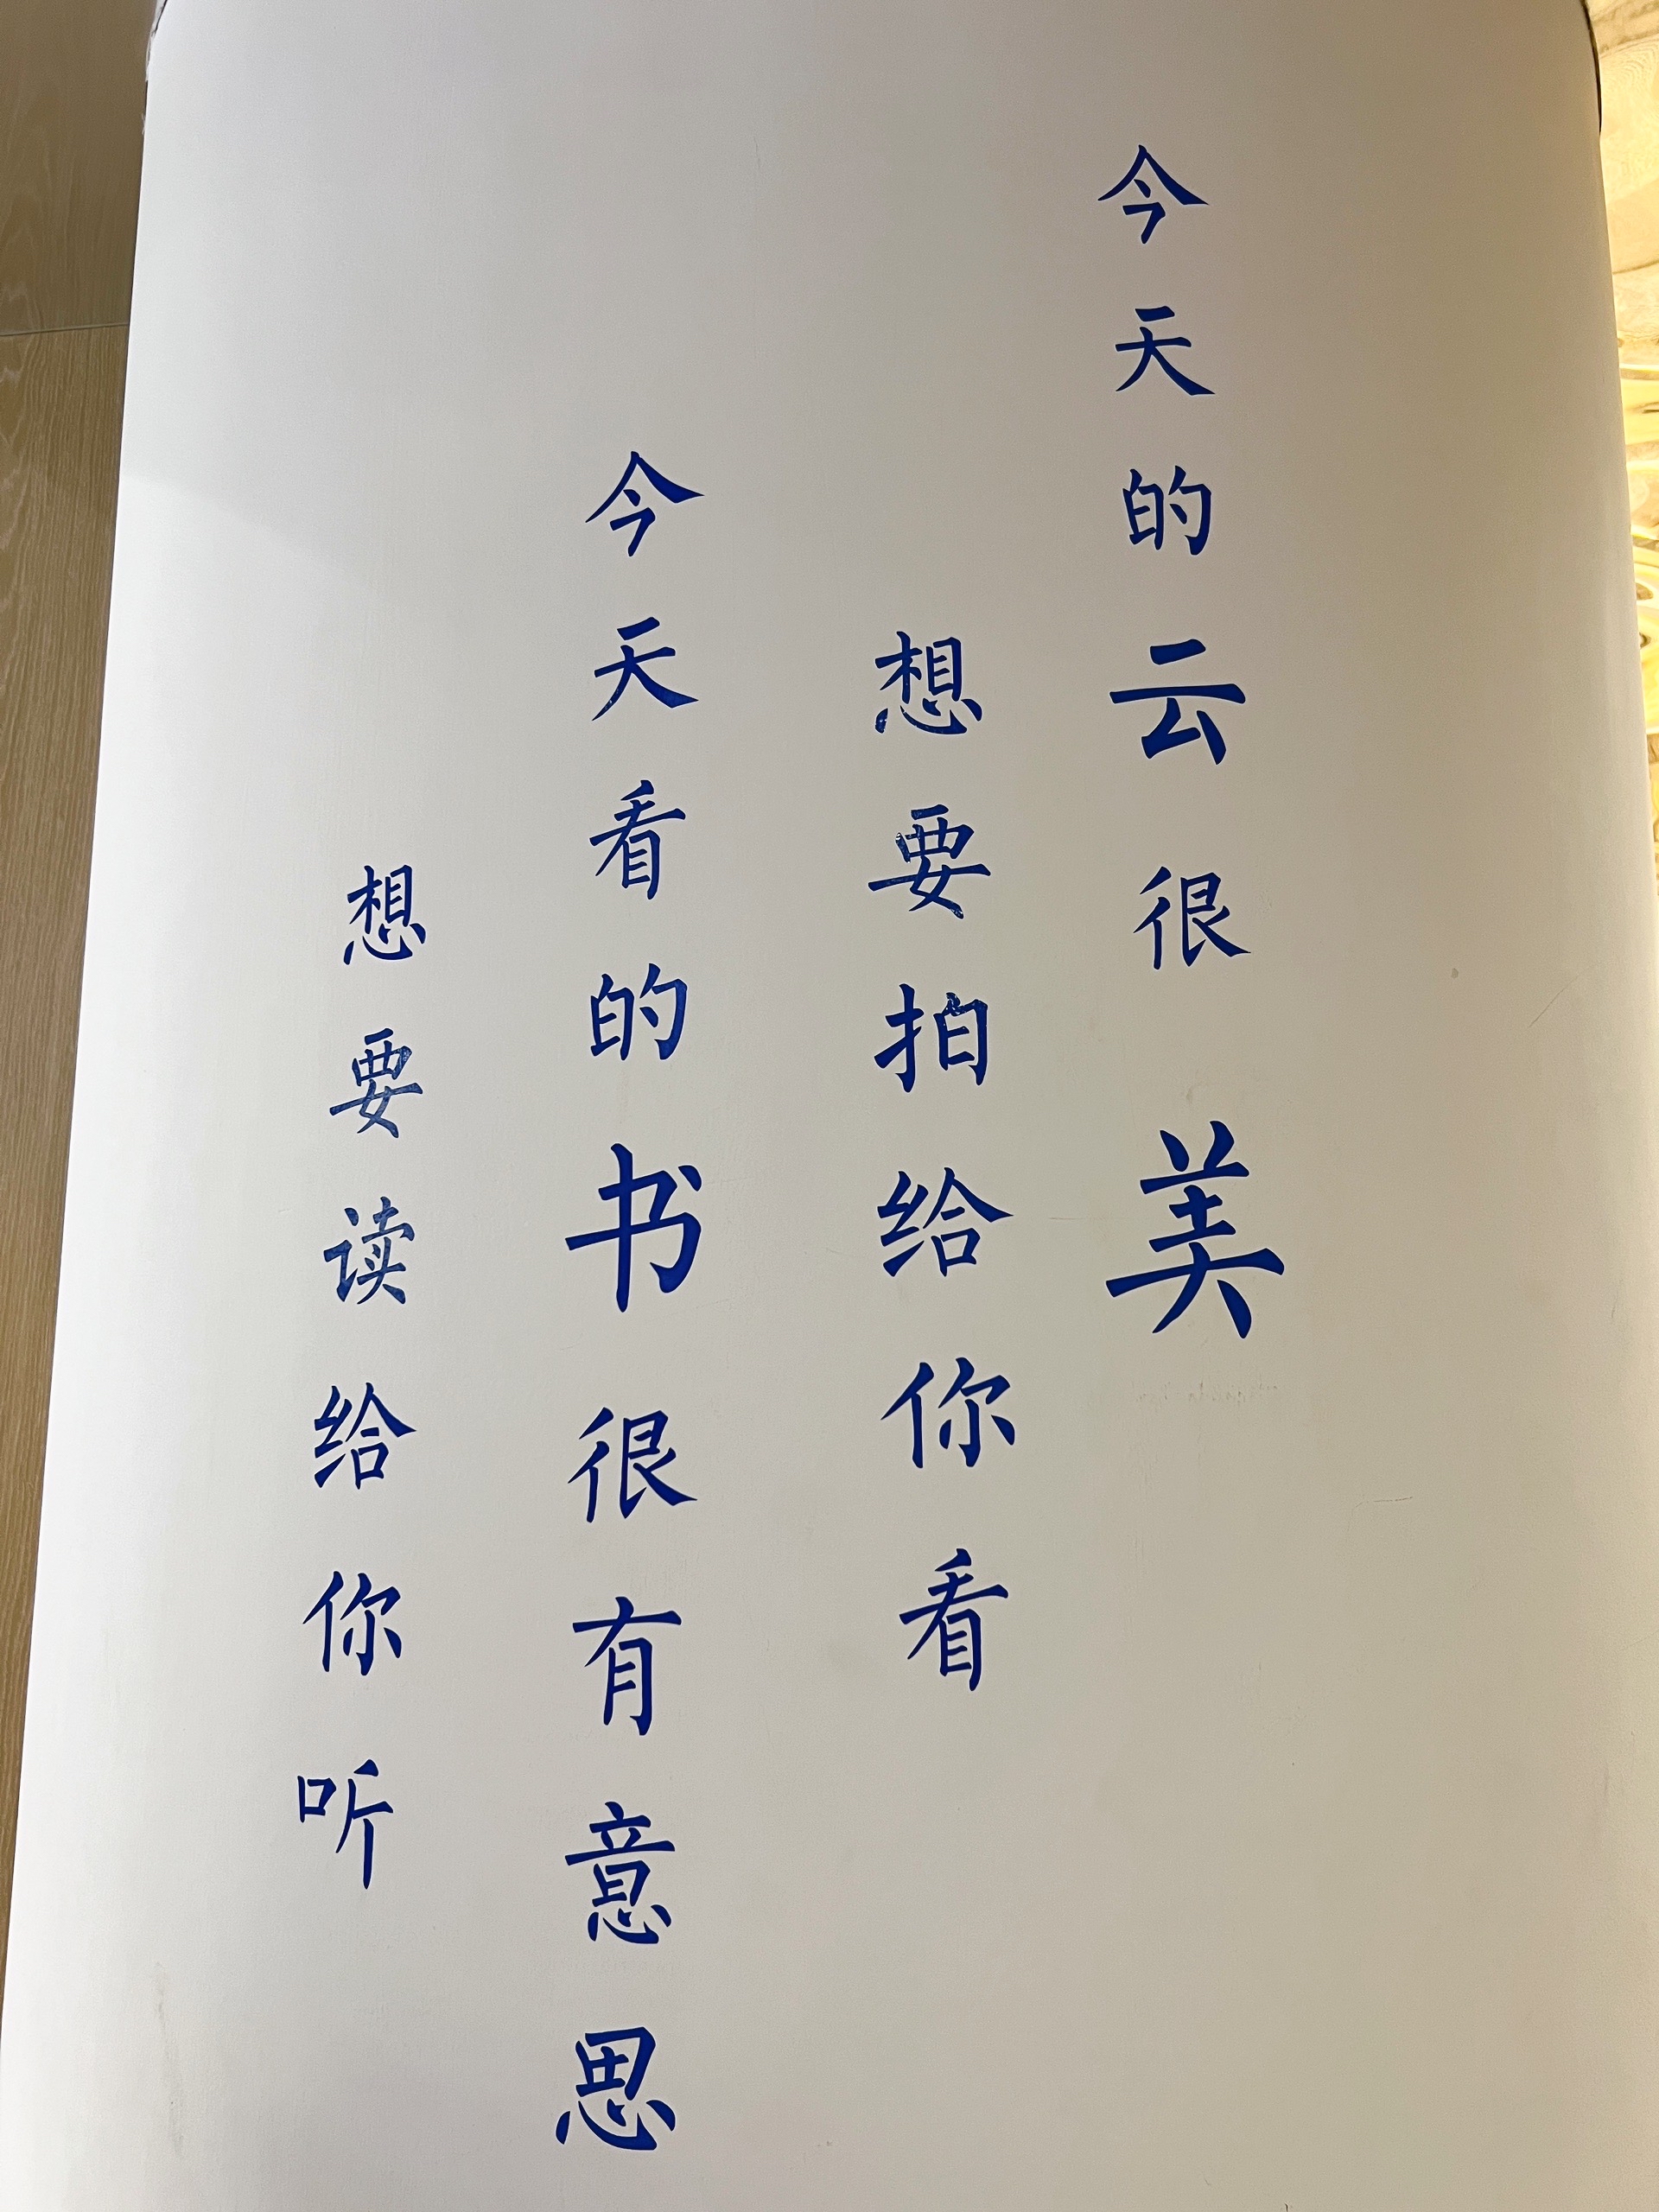 今天的云很美
想要拍给你看
今天看的书很有意思
想要读给你听